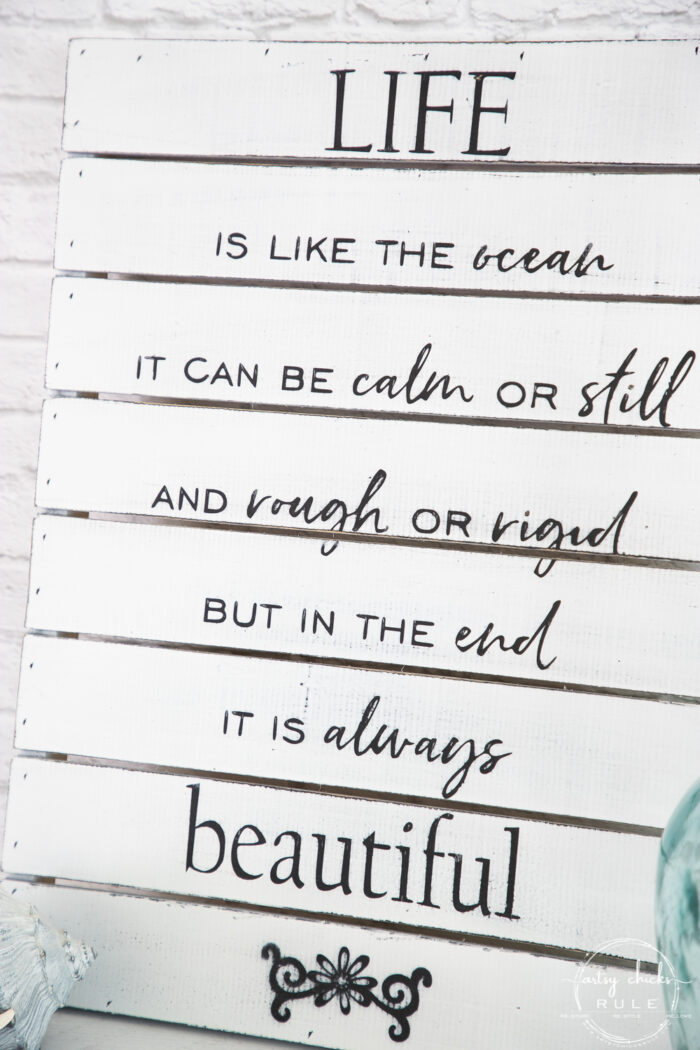 LIFE
IS LIKE THE ocean
IT CAN BE calm OR still
AND rough OR rigid
BUT IN THE end
IT IS always
beautiful
artsy chicks
RULE